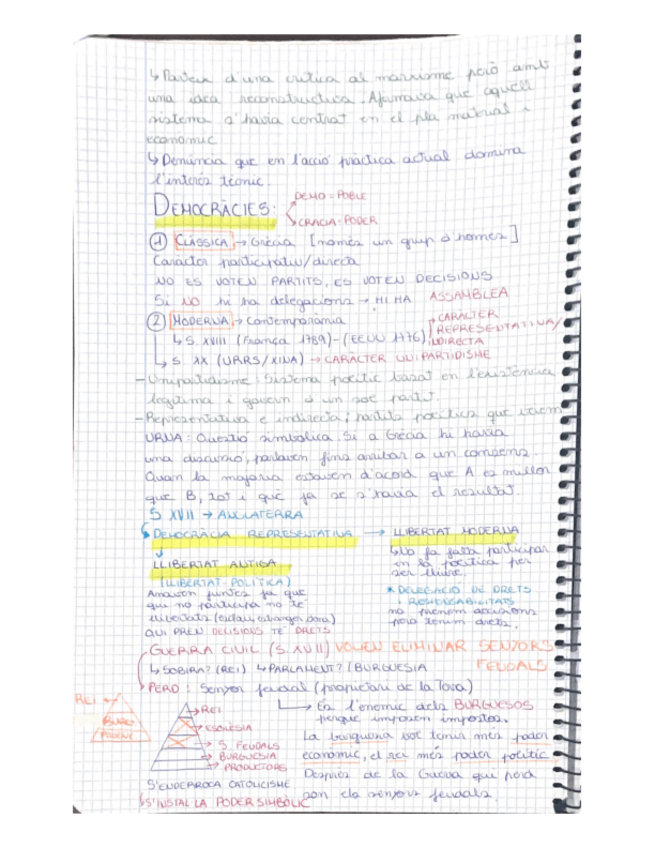 ↳ Parteix d'una crítica al marxisme però amb
una idea reconstructiva. Afirmava que aquell
sistema s'havia centrat en el pla material i
econòmic
↳ Denúncia que en l'acció pràctica actual domina
l'interès tècnic.
DEMOCRÀCIES:
DEMO = POBLE
CRACIA = PODER
① CLÀSSICA → Grècia [només un grup d'homes]
Caràcter participatiu/directa
NO ES VOTEN PARTITS, ES VOTEN DECISIONS
Si NO hi ha delegacions → HI HA ASSAMBLEA
② MODERNA → Contemporània
↳ S. XVIII (França 1789)-(EEUU 1776)
CARÀCTER
REPRESENTATIVA/
INDIRECTA
↳ S XX (URRS/XINA) → CARÀCTER UNIPARTIDISME
- Unipartidisme: Sistema polític basat en l'existència
legítima i govern d'un sol partit.
- Representativa e indirecta: partits polítics que
URNA: Questió simbòlica. Si a Grècia hi havia
una discussió, parlaven fins arribar a un consens.
Quan la majoria estaven d'acord que A es millor
que B, tot i què ja se s'havia el resultat.
S XVII → ANGLATERRA
DEMOCRÀCIA REPRESENTATIVA → LLIBERTAT MODERNA
LLIBERTAT ANTIGA
(LLIBERTAT-POLÍTICA)
Anaven juntes ja que
qui no participa no té
llibertats (esclau, estranger, dona)
QUI PREN DECISIONS TÉ DRETS
↳ No fa falta participar
en la política per
ser lliure.
* DELEGACIÓ DE DRETS
I RESPONSABILITATS
no prenem decisions
però tenim drets.
GUERRA CIVIL (S. XVII) VOLEN ELIMINAR SENYORS
FEUDALS
↳ SOBIRÀ? (REI) ↳ PARLAMENT? (BURGUESIA
PERO: Senyor feudal (propietari de la Terra)
↳ Es l'enemic dels BURGUESOS
perquè imposen impostos.
REI
BURG.
POBLE
REI
ESGLÉSIA
S. FEUDALS
BURGUESIA
PRODUCTORS
La burguesia vol tenir més poder
econòmic, el rei més poder polític
Després de la Guerra qui perd
són els senyors feudals.
S'ENDERROCA CATOLICISME
↳ S'INSTAL·LA PODER SIMBÒLIC